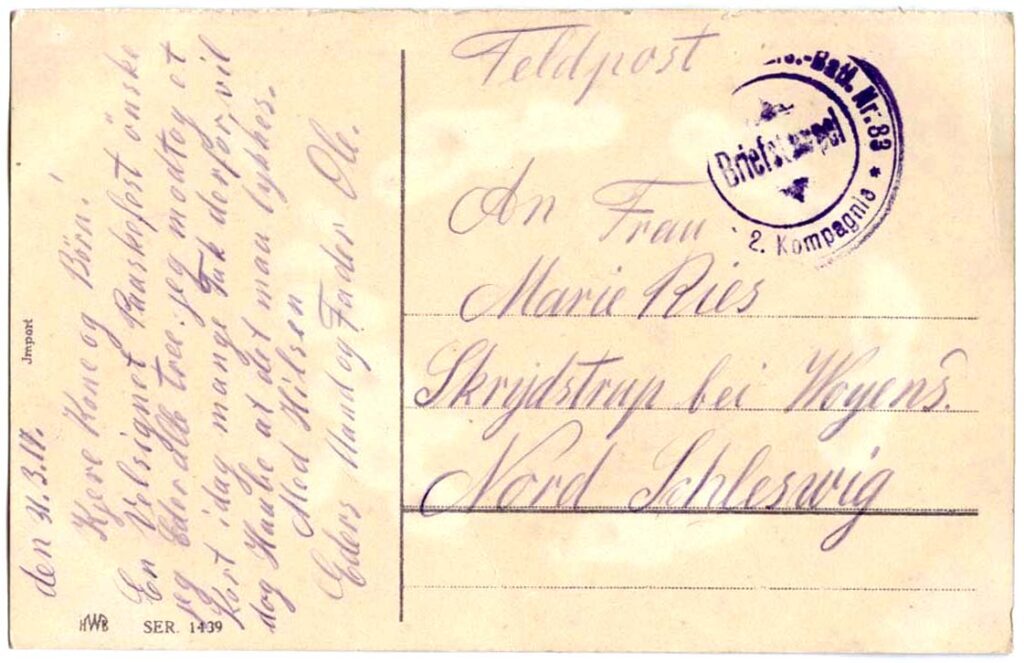 Feldpost
An Frau
Marie Ries
Skrydstrup bei Woyens.
Nord Schleswig
.-Batl. Nr. 83
Briefstempel
* 2. Kompagnie *
den 31.3.17.
Kjere Kone og Börn!
En Velsignet Paaskefest önske
jeg Eder alle tree. jeg modtog et
Kort idag mange Tak derfor, vil
dog Haabe at det maa lykkes.
Med Hilsen
Eders Mand og Fader Ole.
Import
HWB SER. 1439